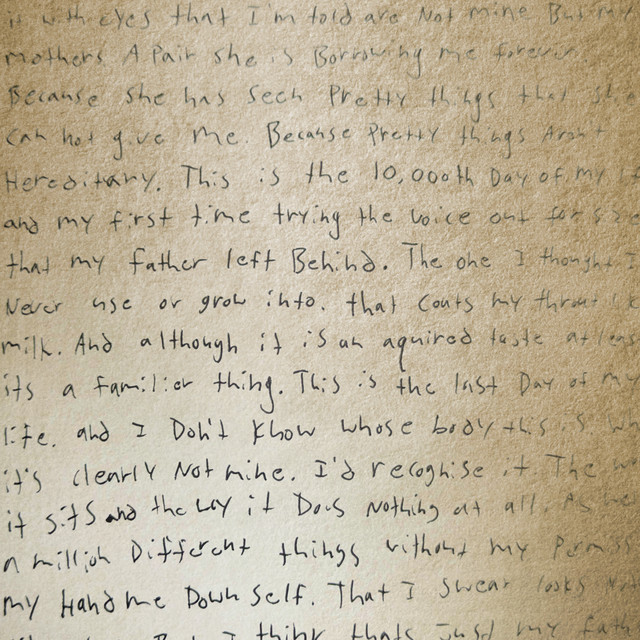 it with eyes that I'm told are Not mine But my
mothers A Pair she is Borrowing me forever.
Because she has seen Pretty things that she
can not give me. Because Pretty things Aren't
Hereditary. This is the 10,000th Day of my
and my first time trying the voice out for size
that my father left Behind. The one I thought I
Never use or grow into. that Coats my throat
milk. And although it is an aquired taste atleast
its a familier thing. This is the last Day of my
life. and I Don't know whose body this is
it's clearly Not mine. I'd recognise it. The
it sits and the way it Does Nothing at all.
a million Different things without my
my Hand me Down self. That I swear looks Not
But I think thats Just my